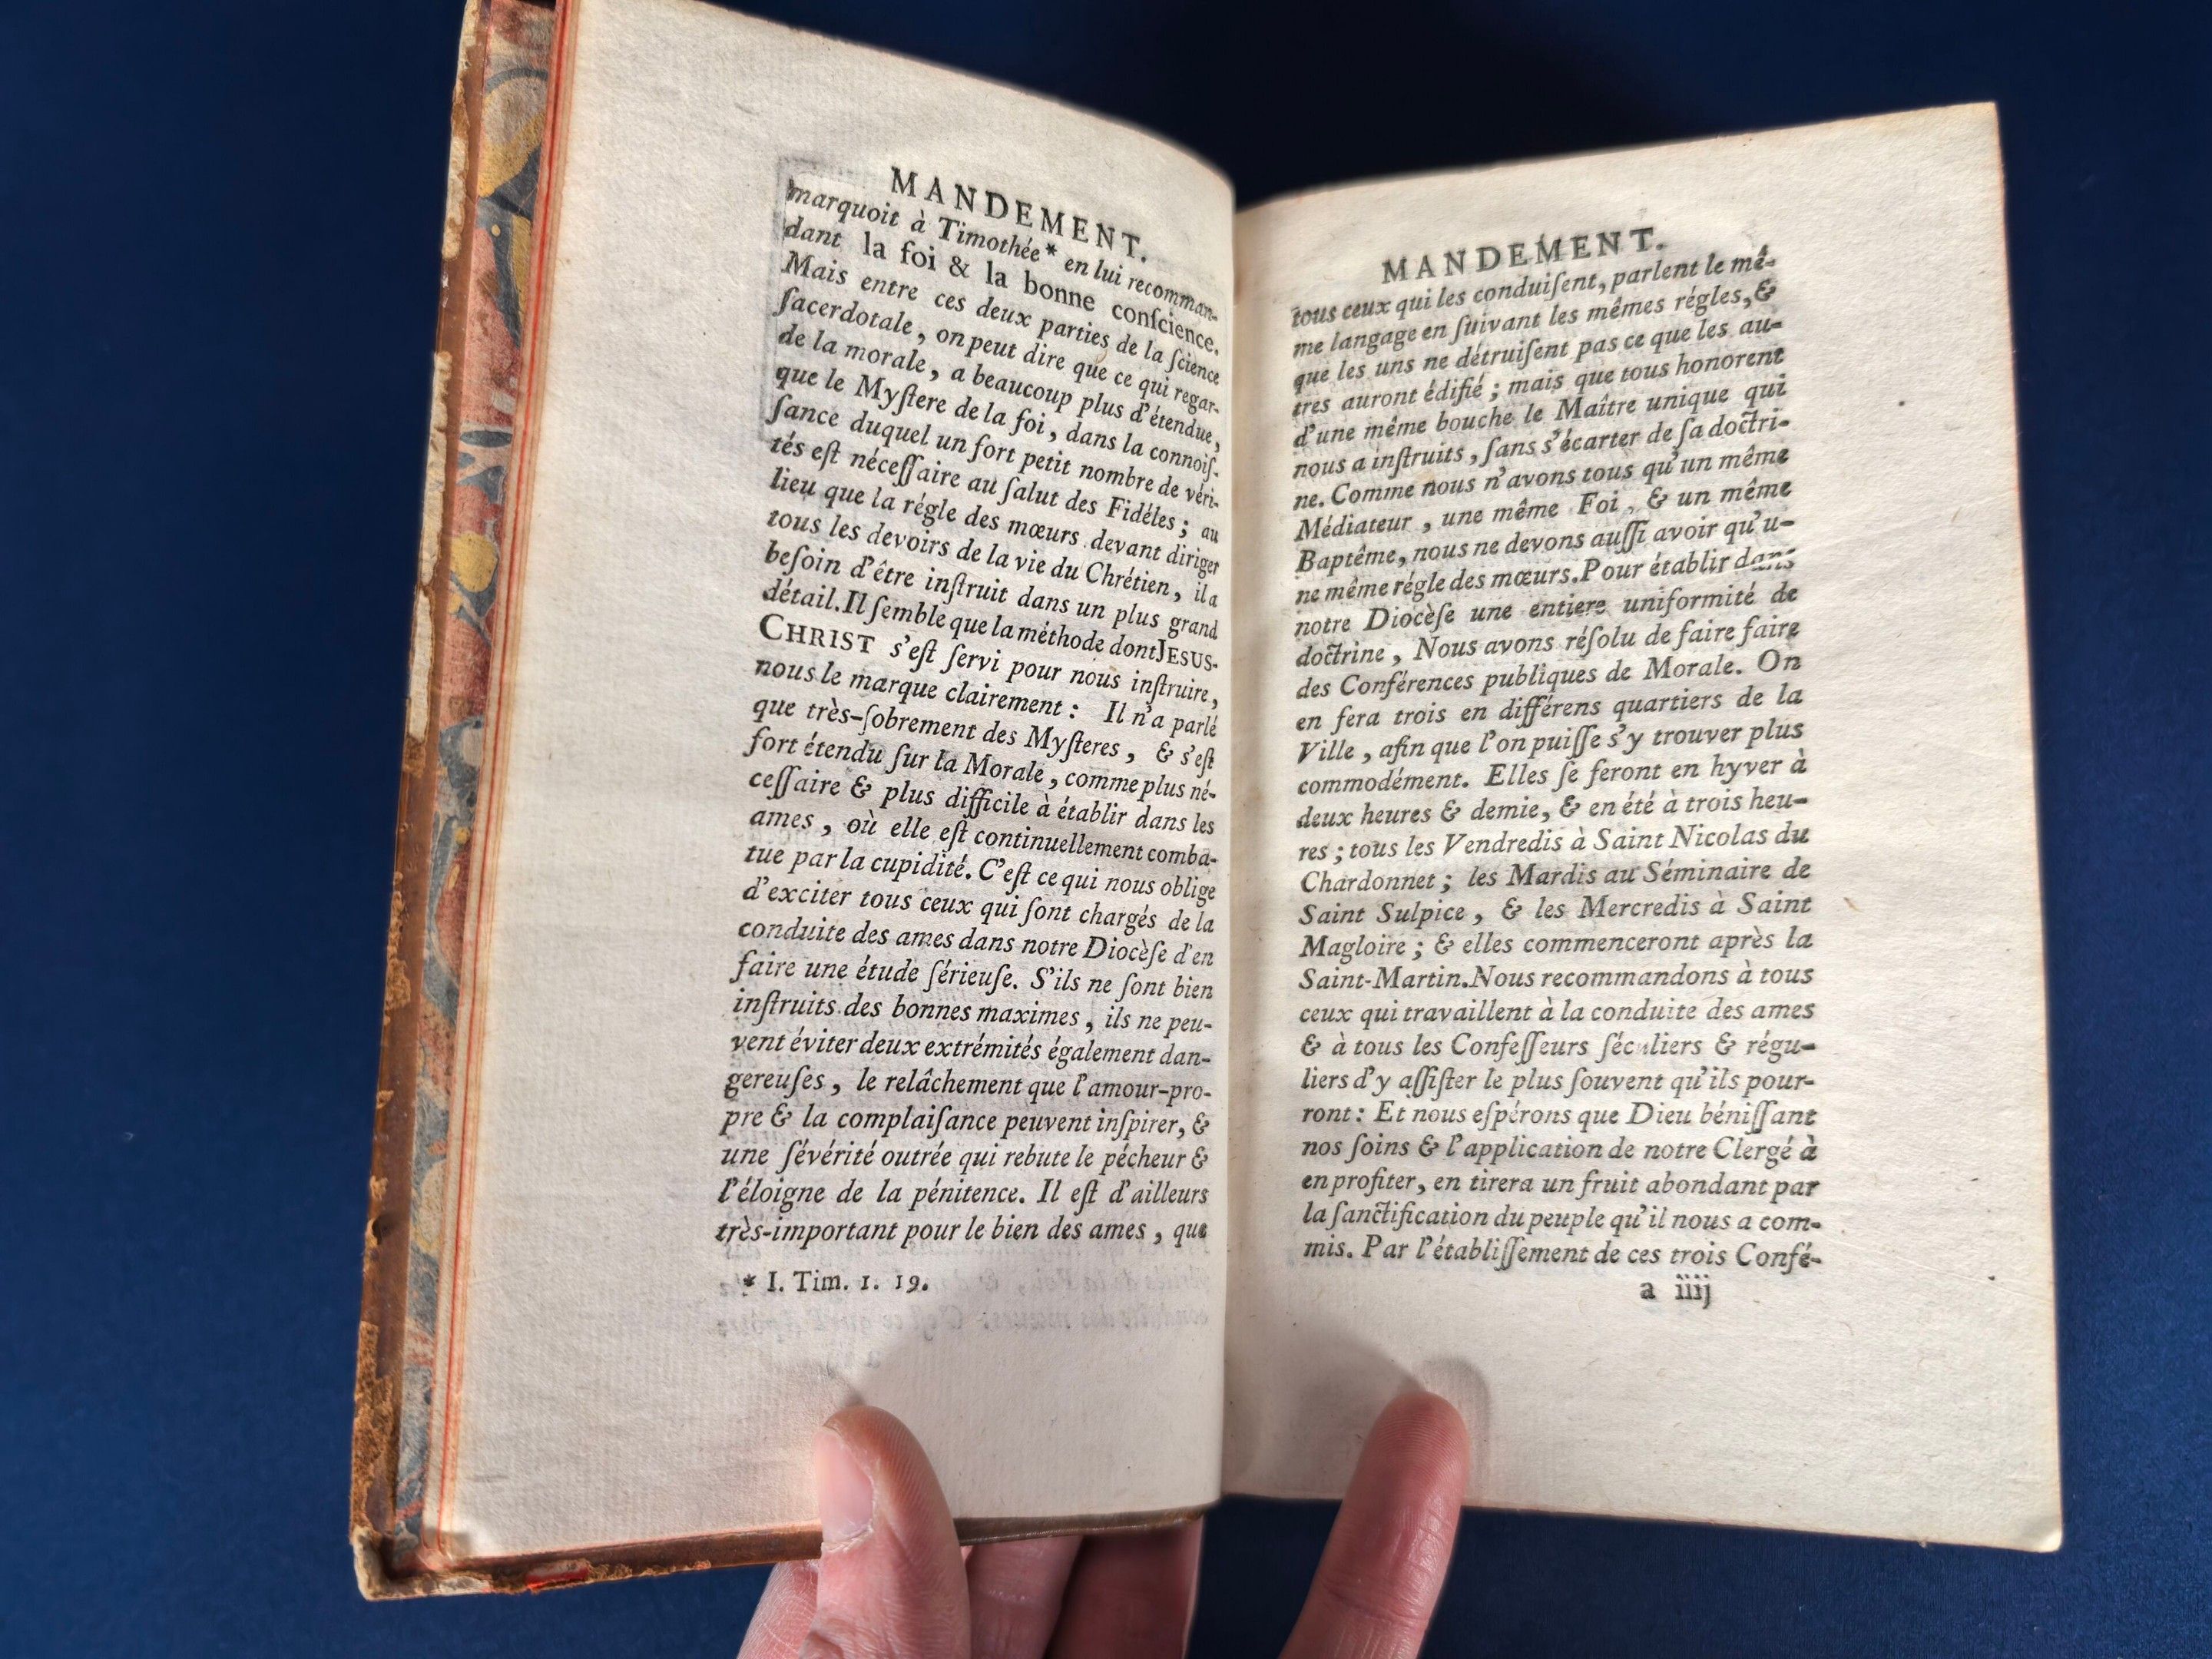 MANDEMENT.
marquoit à Timothée* en lui recomman-
dant la foi & la bonne conſcience.
Mais entre ces deux parties de la ſcience
ſacerdotale, on peut dire que ce qui regar-
de la morale, a beaucoup plus d'étendue,
que le Myſtere de la foi, dans la connoiſ-
ſance duquel un fort petit nombre de véri-
tés eſt néceſſaire au ſalut des Fidéles; au
lieu que la régle des mœurs devant diriger
tous les devoirs de la vie du Chrétien, il a
beſoin d'être inſtruit dans un plus grand
détail. Il ſemble que la méthode dont JESUS-
CHRIST s'eſt ſervi pour nous inſtruire,
nous le marque clairement: Il n'a parlé
que très-ſobrement des Myſteres, & s'eſt
fort étendu ſur la Morale, comme plus né-
ceſſaire & plus difficile à établir dans les
ames, où elle eſt continuellement comba-
tue par la cupidité. C'eſt ce qui nous oblige
d'exciter tous ceux qui ſont chargés de la
conduite des ames dans notre Diocèſe d'en
faire une étude ſérieuſe. S'ils ne ſont bien
inſtruits des bonnes maximes, ils ne peu-
vent éviter deux extrémités également dan-
gereuſes, le relâchement que l'amour-pro-
pre & la complaiſance peuvent inſpirer, &
une ſévérité outrée qui rebute le pécheur &
l'éloigne de la pénitence. Il eſt d'ailleurs
très-important pour le bien des ames, que
* I. Tim. 1. 19.
MANDEMENT.
tous ceux qui les conduiſent, parlent le mê-
me langage en ſuivant les mêmes régles, &
que les uns ne détruiſent pas ce que les au-
tres auront édifié; mais que tous honorent
d'une même bouche le Maître unique qui
nous a inſtruits, ſans s'écarter de ſa doctri-
ne. Comme nous n'avons tous qu'un même
Médiateur, une même Foi, & un même
Baptême, nous ne devons auſſi avoir qu'u-
ne même régle des mœurs. Pour établir dans
notre Diocèſe une entiere uniformité de
doctrine, Nous avons réſolu de faire faire
des Conférences publiques de Morale. On
en fera trois en différens quartiers de la
Ville, afin que l'on puiſſe s'y trouver plus
commodément. Elles ſe feront en hyver à
deux heures & demie, & en été à trois heu-
res; tous les Vendredis à Saint Nicolas du
Chardonnet; les Mardis au Séminaire de
Saint Sulpice, & les Mercredis à Saint
Magloire; & elles commenceront après la
Saint-Martin. Nous recommandons à tous
ceux qui travaillent à la conduite des ames
& à tous les Confeſſeurs ſéculiers & régu-
liers d'y aſſiſter le plus ſouvent qu'ils pour-
ront: Et nous eſpérons que Dieu béniſſant
nos ſoins & l'application de notre Clergé à
en profiter, en tirera un fruit abondant par
la ſanctification du peuple qu'il nous a com-
mis. Par l'établiſſement de ces trois Confé-
a iiij